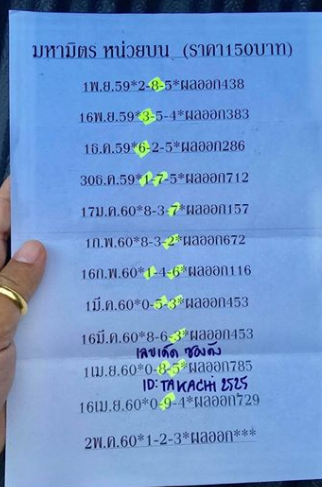 มหามิตร หน่วยบน (ราคา150บาท)
1พ.ย.59*2-8-5*ผลออก438
16พ.ย.59*3-5-4*ผลออก383
1ธ.ค.59*6-2-5*ผลออก286
30ธ.ค.59*1-7-5*ผลออก712
17ม.ค.60*8-3-7*ผลออก157
1ก.พ.60*8-3-2*ผลออก672
16ก.พ.60*1-4-6*ผลออก116
1มี.ค.60*0-5-3*ผลออก453
16มี.ค.60*8-6-3*ผลออก453
เลขเด็ด ซองดัง
1เม.ย.60*0-8-5*ผลออก785
ID: TAKACHI 2525
16เม.ย.60*0-9-4*ผลออก729
2พ.ค.60*1-2-3*ผลออก***